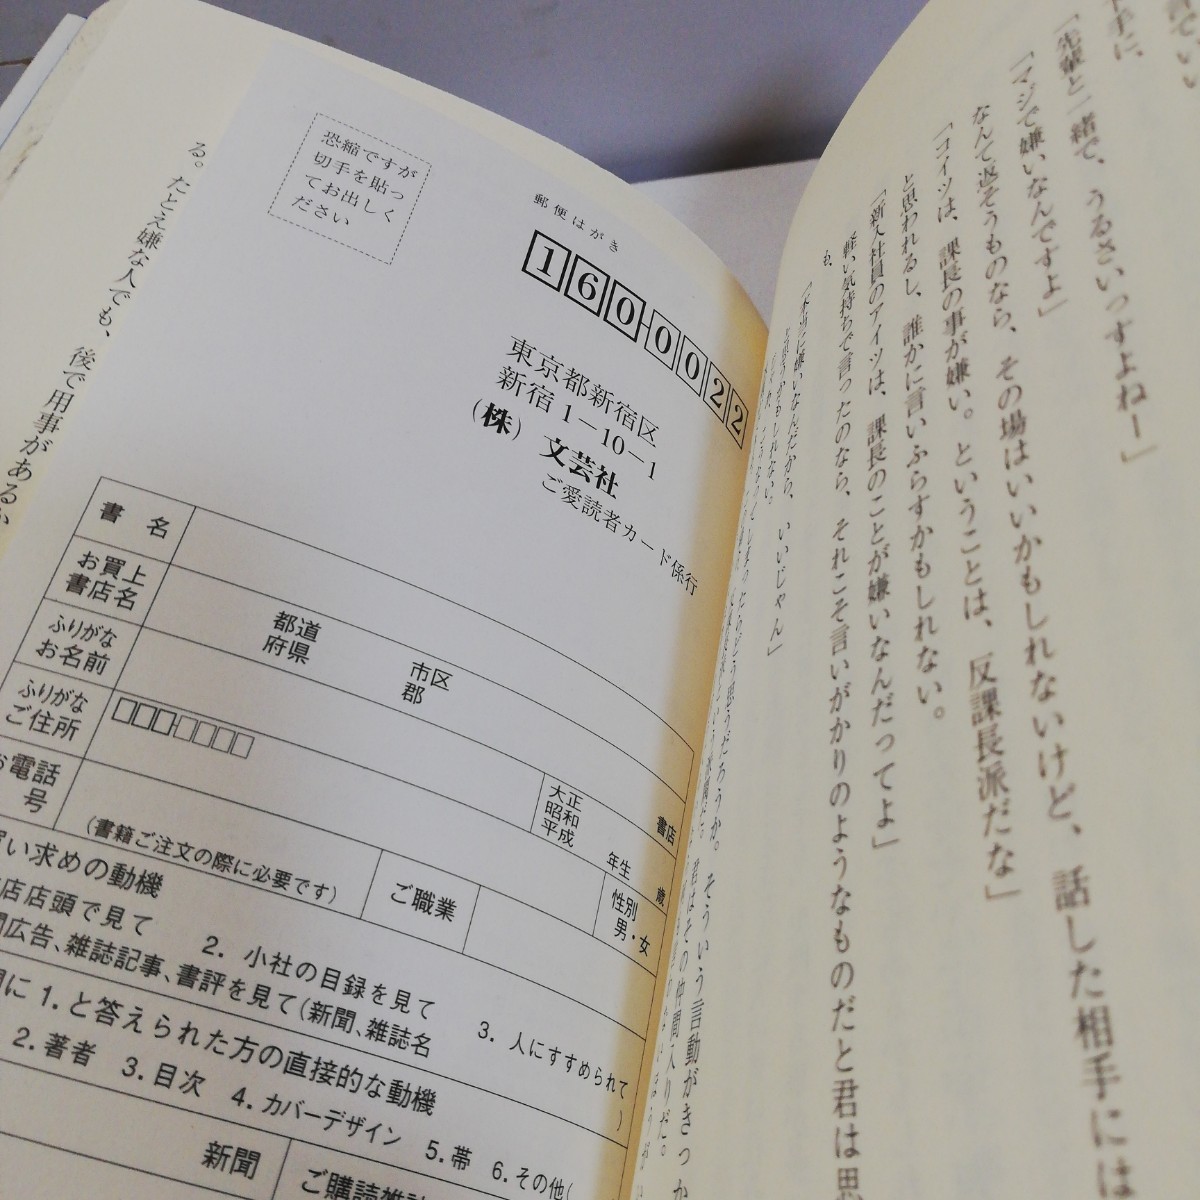 る。たとえ嫌な人でも、後で用事があるか
恐縮ですが
切手を貼っ
てお出しく
ださい
郵便はがき
160-0022
東京都新宿区
新宿1－10－1
(株) 文芸社
ご愛読者カード係行
書 名
お買上
書店名
都道
府県
市区
郡
書店
ふりがな
お名前
大正
昭和
平成
年生
歳
ふりがな
ご住所
性別
男・女
お電話
号
(書籍ご注文の際に必要です)
ご職業
い求めの動機
店店頭で見て
2. 小社の目録を見て
3. 人にすすめられて
広告、雑誌記事、書評を見て(新聞、雑誌名
)
に1.と答えられた方の直接的な動機
2.著者 3.目次 4.カバーデザイン 5.帯 6.その他(
新聞
ご購読雑誌
手に、
「先輩と一緒で、うるさいっすよねー」
「マジで嫌いなんですよ」
なんて返そうものなら、その場はいいかもしれないけど、話した相手には
「コイツは、課長の事が嫌い。ということは、反課長派だな」
と思われるし、誰かに言いふらすかもしれない。
「新入社員のアイツは、課長のことが嫌いなんだってよ」
軽い気持ちで言ったのなら、それこそ言いがかりのようなものだと君は思
も、
「本当に嫌いなんだから、いいじゃん」
と思うかもしれない。
たらどう思うだろうか。そういう言動がきっか
君はその仲間入りだ。